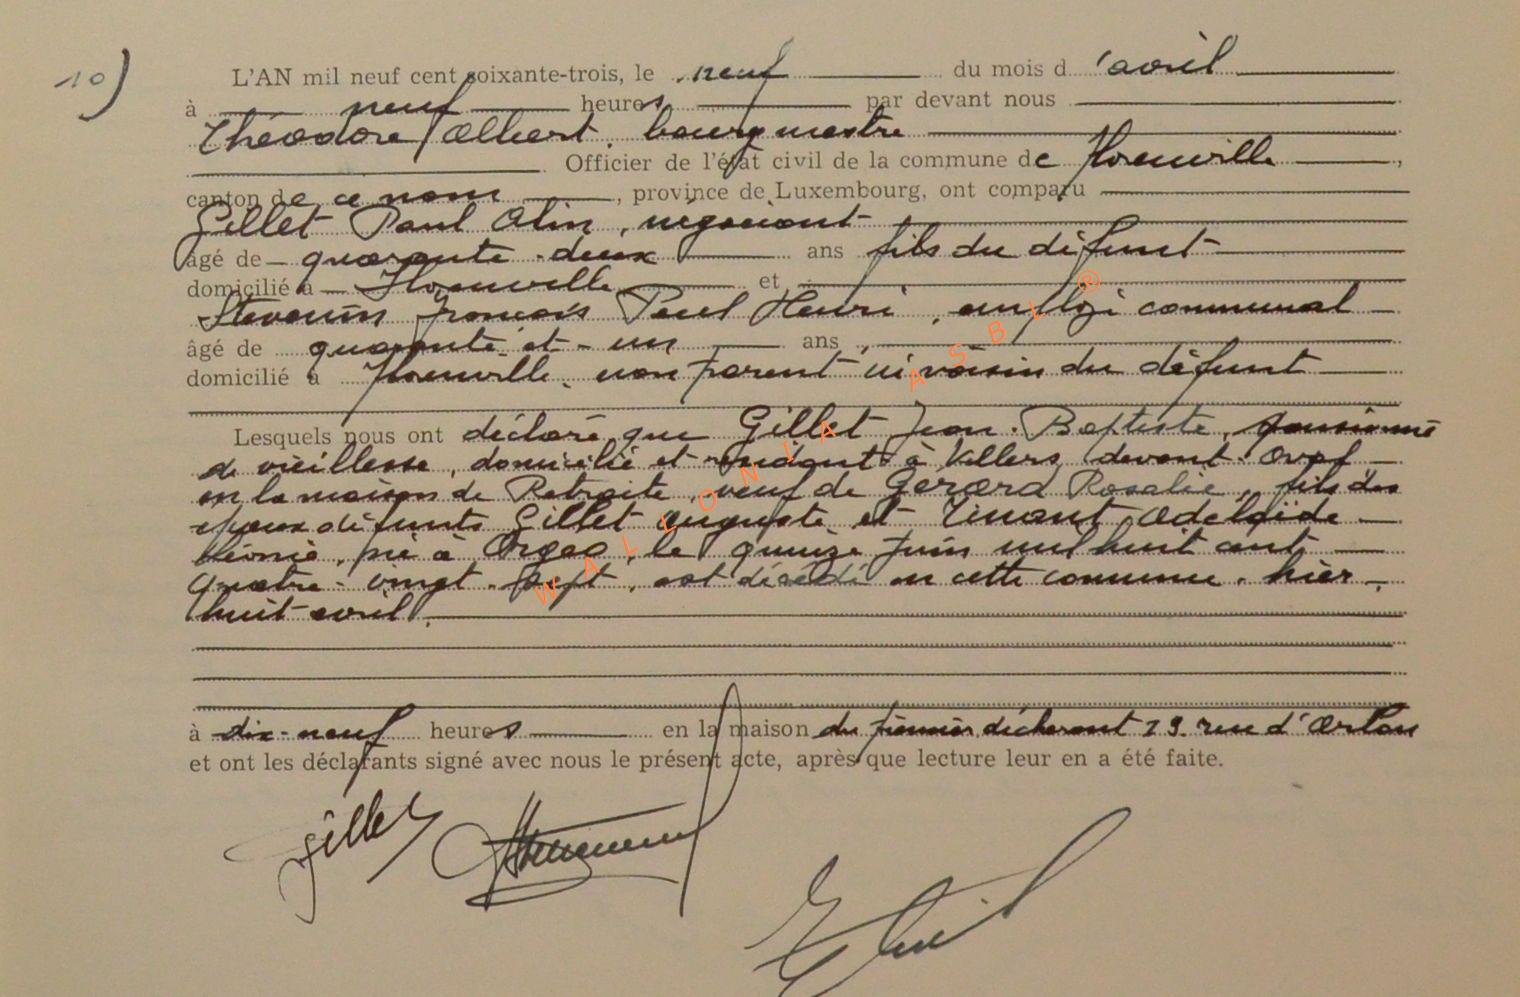 10)
L'AN mil neuf cent soixante-trois, le neuf du mois d'avril
à neuf heures par devant nous
Théodore Albert, bourgmestre
Officier de l'état civil de la commune de Florenville,
canton de ce nom, province de Luxembourg, ont comparu
Gillet Paul Alin, négociant
âgé de quarante-deux ans fils du défunt
domicilié à Florenville et
Stevenin François Paul Henri, employé communal
âgé de quarante et un ans,
domicilié à Florenville, non parent ni voisin du défunt
Lesquels nous ont déclaré que Gillet Jean-Baptiste, pensionné
de vieillesse, domicilié et résidant à Villers devant Orval
en la maison de Retraite, veuf de Gerard Rosalie, fils des
époux défunts Gillet Auguste et Tinant Adelaïde
Léonie, né à Orgeo, le quinze juin mil huit cent
quatre-vingt-sept, est décédé en cette commune, hier
huit avril,
à dix-neuf heures en la maison du premier déclarant 29 rue d'Arlon
et ont les déclarants signé avec nous le présent acte, après que lecture leur en a été faite.
Gillet
WALLONIA ASBL ®